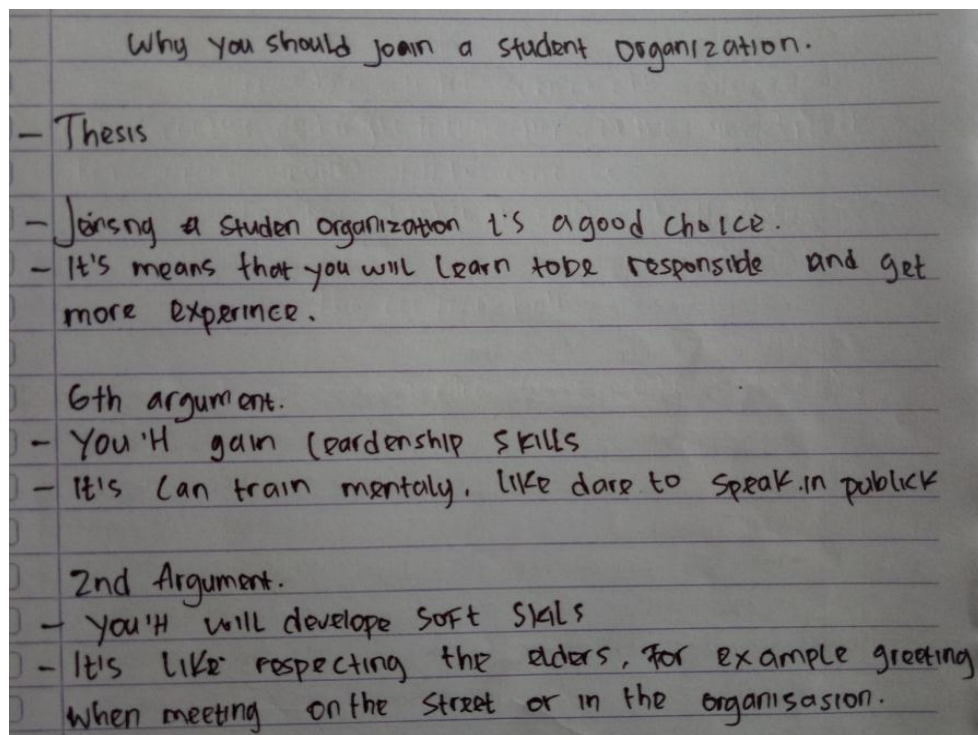 Why you should joain a student organization.
- Thesis
- Joinsng a studen organization i's a good choice.
- It's means that you will learn tobe responsible and get
more experince.
6th argument.
- You'H gain leardenship skills
- It's can train mentaly. like dare to speak.in publick
2nd Argument.
- you'H will develope soft skils
- It's like respecting the elders, For example greeting
when meeting on the street or in the organisasion.